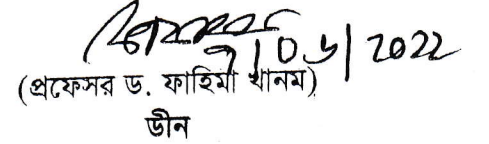 ৭|০৬|2022
(প্রফেসর ড. ফাহিমা খানম)
ডীন